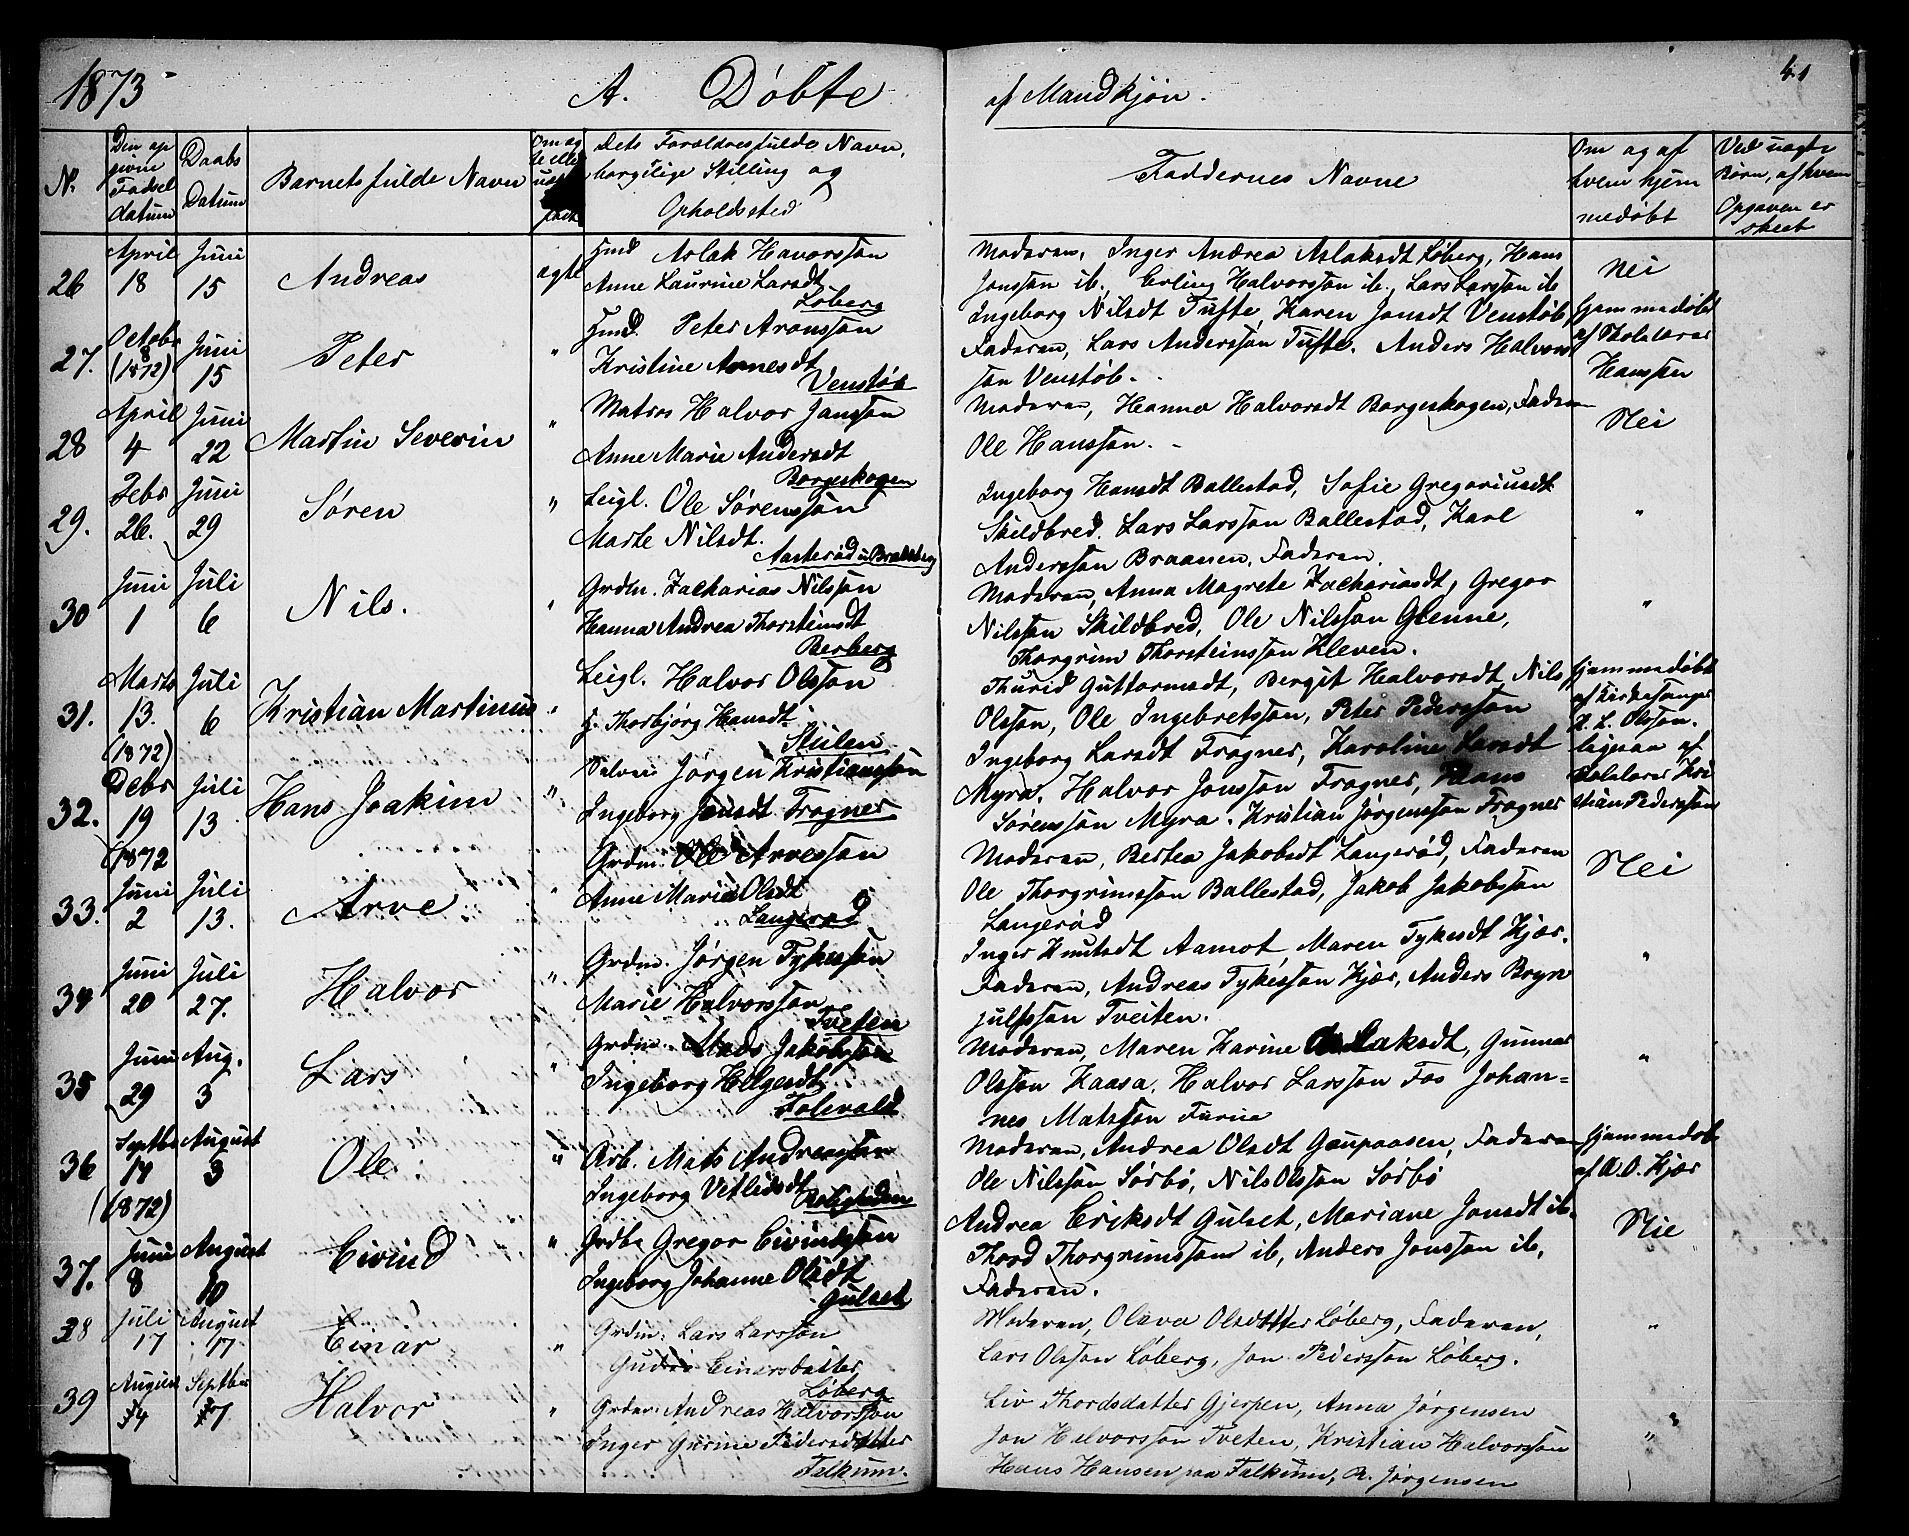 1873 A. Døbte af Mandkjøn. 41
N. Den op givne Fødsel datum Daabs Datum Barnets fulde Navn Om æg te eller uægte født Dets Forældres fulde Navn, borgerlige Stilling og Opholdssted Faddernes Navne Om og af hvem hjem medøbt Ved uægte Børn, af hvem Opgaven er skeet
26 April 18 Juni 15 Andreas ægte Hmd Aslak Havorssøn
Anne Laurine Larsdt
Løberg
Moderen, Inger Andrea Aslaksdt Løberg, Hans
Jonssøn ib., Erling Halvorssøn ib., Lars Larssøn ib
Nei
27. Octobr 8 (1872) Juni 15 Peter " Hmd. Peter Aronssøn
Kristine Arnesdt
Venstøb
Ingeborg Nilsdt Tufte, Karen Jonsdt Venstøb,
Faderen, Lars Anderssøn Tufte. Anders Halvors
søn Venstøb.
Hjemmedøbt
af Skolelærer
Hanssen
28 April 4 Juni 22 Martin Severin " Matros Halvor Janssøn
Anne Marie Andersdt
Borgeskogen
Moderen, Hanna Halvorsdt Borgeskogen, Faderen
Ole Hanssøn.
Nei
29. Febr 26. Juni 29 Søren " Leigl. Ole Sørenssøn
Marte Nilsdt.
Aasterød u Bratsberg
Ingeborg Hansdt Ballestad, Sofie Gregoriusdt
Skildbred. Lars Larssøn Ballestad, Karl
Anderssøn Braanen, Faderen.
"
30 Juni 1 Juli 6 Nils. " Grdm. Zacharias Nilssøn
Hanna Andrea Thorsteinsdt
Berberg
Moderen, Anna Magrete Zachariasdt, Gregor
Nilssøn Skildbred, Ole Nilssøn Glenne,
Thorgrim Thorsteinssøn Kleven.
"
31. Marts 13. (1872) Juli 6 Kristian Martinus " Leigl. Halvor Olssøn
H. Thorbjørg Hansdt
Stulen
Thurid Guttormsdt, Bergit Halvorsdt, Nils
Olssøn, Ole Ingebretssøn, Peter Pederssøn
Hjemmedøbt
af Kirkesanger
L. L. Olssøn.
32. Debr 19 (1872 Juli 13 Hans Joakim " Selvei Jørgen Kristianssøn
Ingeborg Jonsdt Frogner
Ingeborg Larsdt Frogner, Karoline Larsdt
Myra, Halvor Jonssøn Frogner, Hans
Sørenssøn Myra. Kristian Jørgenssøn Frogner
ligesaa af
Skolelærer Kri
stian Pederssøn
33. Juni 2 Juli 13. Arve " Grdm. Ole Arvessøn
Anne Maria Olsdt
Langerød
Moderen, Bertea Jakobsdt Langerød, Faderen
Ole Thorgrimssøn Ballestad, Jakob Jakobssøn
Langerød
Nei
34 Juni 20 Juli 27. Halvor " Grdm. Jørgen Tykessøn
Marie Halvorssøn
Tveten
Inger Knutsdt Aamot Maren Tykesdt Kjær.
Faderen, Andreas Tykessøn Kjær, Anders Bryn
julfssøn Tveiten.
"
35 Juni 29 Aug. 3 Lars " Grdm. Mads Jakobssøn
Ingeborg Helgesdt
Folevald
Moderen, Maren Karine Aslaksdt, Gunnar
Olssøn Kaasa, Halvor Larssøn Fos Johan=
nes Matssøn Furua
"
36 Septbr 17 (1872) August 3 Ole " Arb. Mats Andreassøn
Ingeborg Vetlidsdt
Moderen, Andrea Olsdt Gaupaasen, Faderen
Ole Nilssøn Sørbø, Nils Olssøn Sørbø
Hjemmedøbt
af A. O. Kjær
37. Juni 8 August 10 Eivind " Grdbr Gregor Eivindssøn
Ingeborg Johanne Olsdt
Gulset
Andrea Eriksdt Gulset, Mariane Jonsdt ib,
Thord Thorgrimssøn ib, Anders Jonssøn ib,
Faderen.
Nie
38 Juli 17 August 17. Einar " Grdm. Lars Larssøn
Einarsdatter
Løberg
Moderen, Olava Olsdatter Løberg, Faderen,
Lars Olssøn Løberg, Jon Pederssøn Løberg.
"
39 August 4 Septbr 7 Halvor " Grdm. Andreas Halvorssøn
Inger Gurine Pedersdatter
Falkum.
Liv Thordsdatter Gjerpen, Anna Jørgensen
Jon Halvorssøn Tveten, Kristian Halvorssøn
Hans Hansen paa Falkum, R. Jørgensen
"